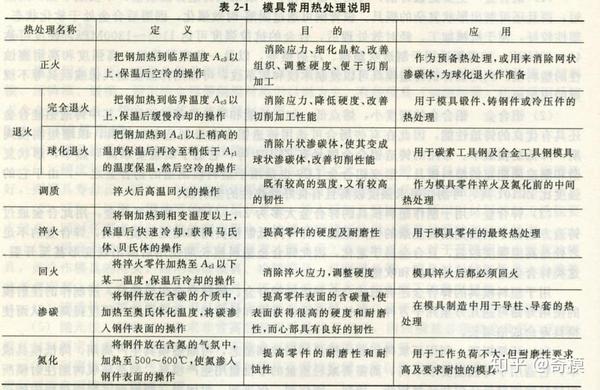 表 2-1 模具常用热处理说明
热处理名称 定 义 目 的 应 用
正火
把钢加热到临界温度 Ac3 以
上,保温后空冷的操作
消除应力、细化晶粒、改善
组织、调整硬度、便于切削
加工
作为预备热处理,或用来消除网状
渗碳体,为球化退火作准备
退火
完全退火
把钢加热到临界温度 Ac3 以
上,保温后缓慢冷却的操作
消除应力、降低硬度、改善
切削加工性能
用于模具锻件、铸钢件或冷压件的
热处理
球化退火
把钢加热到 Ac1 以上稍高的
温度保温后再冷至稍低于 Ar1
的温度保温,然后空冷的操作
消除片状渗碳体,使其变成
球状渗碳体,改善切削性能
用于碳素工具钢及合金工具钢模具
调质
淬火后高温回火的操作
既有较高的强度,又有较高
的韧性
作为模具零件淬火及氮化前的中间
热处理
淬火
将钢加热到相变温度以上,
保温后快速冷却,获得马氏
体、贝氏体的操作
提高零件的硬度及耐磨性
用于模具零件的最终热处理
回火
将淬火零件加热至 Ac1 以下
某一温度,保温后冷却的操作
消除淬火应力,调整硬度
模具淬火后都必须回火
渗碳
将钢件放在含碳的介质中,
加热至奥氏体化温度,将碳渗
入钢件表面的操作
提高零件表面的含碳量,使
表面获得很高的硬度和耐磨
性,而心部具有良好的韧性
在模具制造中用于导柱、导套的热
处理
氮化
将钢件放在含氮的气氛中,
加热至500~600℃,使氮渗入
钢件表面的操作
提高零件的耐磨性和耐
蚀性
用于工作负荷不大,但耐磨性要求
高及要求耐蚀的模具
知乎 @奇模